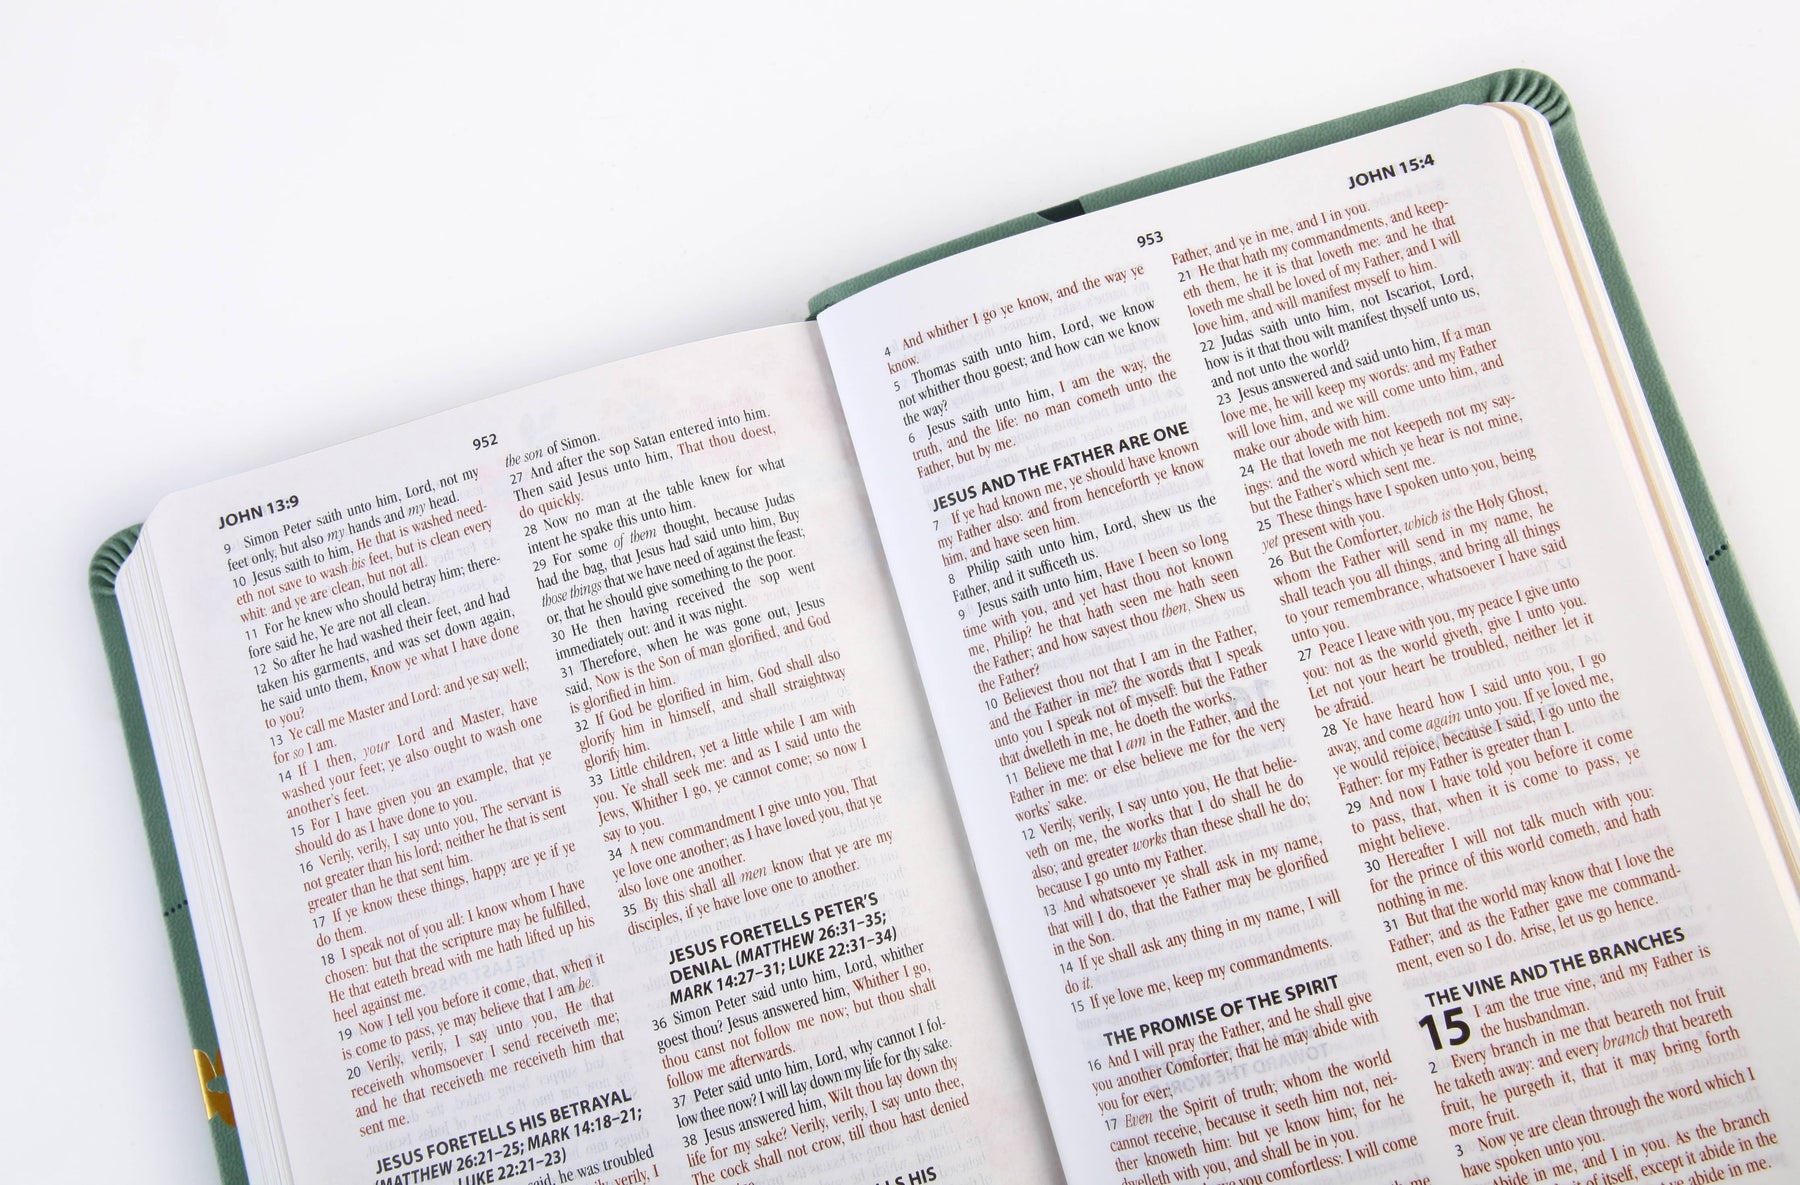 952
JOHN 13:9
9 Simon Peter saith unto him, Lord, not my
feet only, but also my hands and my head.
10 Jesus saith to him, He that is washed need-
eth not save to wash his feet, but is clean every
whit: and ye are clean, but not all.
11 For he knew who should betray him; there-
fore said he, Ye are not all clean.
12 So after he had washed their feet, and had
taken his garments, and was set down again,
he said unto them, Know ye what I have done
to you?
13 Ye call me Master and Lord: and ye say well;
for so I am.
14 If I then, your Lord and Master, have
washed your feet; ye also ought to wash one
another's feet.
15 For I have given you an example, that ye
should do as I have done to you.
16 Verily, verily, I say unto you, The servant is
not greater than his lord; neither he that is sent
greater than he that sent him.
17 If ye know these things, happy are ye if ye
do them.
18 I speak not of you all: I know whom I have
chosen: but that the scripture may be fulfilled,
He that eateth bread with me hath lifted up his
heel against me.
19 Now I tell you before it come, that, when it
is come to pass, ye may believe that I am he.
20 Verily, verily, I say unto you, He that
receiveth whomsoever I send receiveth me;
and he that receiveth me receiveth him that
sent me.
JESUS FORETELLS HIS BETRAYAL
(MATTHEW 26:21–25; MARK 14:18–21;
LUKE 22:21–23)
said, he was troubled
verily, I
the son of Simon.
27 And after the sop Satan entered into him.
Then said Jesus unto him, That thou doest,
do quickly.
28 Now no man at the table knew for what
intent he spake this unto him.
29 For some of them thought, because Judas
had the bag, that Jesus had said unto him, Buy
those things that we have need of against the feast;
or, that he should give something to the poor.
30 He then having received the sop went
immediately out: and it was night.
31 Therefore, when he was gone out, Jesus
said, Now is the Son of man glorified, and God
is glorified in him.
32 If God be glorified in him, God shall also
glorify him in himself, and shall straightway
glorify him.
33 Little children, yet a little while I am with
you. Ye shall seek me: and as I said unto the
Jews, Whither I go, ye cannot come; so now I
say to you.
34 A new commandment I give unto you, That
ye love one another; as I have loved you, that ye
also love one another.
35 By this shall all men know that ye are my
disciples, if ye have love one to another.
JESUS FORETELLS PETER'S
DENIAL (MATTHEW 26:31–35;
MARK 14:27–31; LUKE 22:31–34)
36 Simon Peter said unto him, Lord, whither
goest thou? Jesus answered him, Whither I go,
thou canst not follow me now; but thou shalt
follow me afterwards.
37 Peter said unto him, Lord, why cannot I fol-
low thee now? I will lay down my life for thy sake.
38 Jesus answered him, Wilt thou lay down thy
life for my sake? Verily, verily, I say unto thee,
The cock shall not crow, till thou hast denied
HIS
953
JOHN 15:4
4 And whither I go ye know, and the way ye
know.
5 Thomas saith unto him, Lord, we know
not whither thou goest; and how can we know
the way?
6 Jesus saith unto him, I am the way, the
truth, and the life: no man cometh unto the
Father, but by me.
JESUS AND THE FATHER ARE ONE
7 If ye had known me, ye should have known
my Father also: and from henceforth ye know
him, and have seen him.
8 Philip saith unto him, Lord, shew us the
Father, and it sufficeth us.
9 Jesus saith unto him, Have I been so long
time with you, and yet hast thou not known
me, Philip? he that hath seen me hath seen
the Father; and how sayest thou then, Shew us
the Father?
10 Believest thou not that I am in the Father,
and the Father in me? the words that I speak
unto you I speak not of myself: but the Father
that dwelleth in me, he doeth the works.
11 Believe me that I am in the Father, and the
Father in me: or else believe me for the very
works' sake.
12 Verily, verily, I say unto you, He that belie-
veth on me, the works that I do shall he do
also; and greater works than these shall he do;
because I go unto my Father.
13 And whatsoever ye shall ask in my name,
that will I do, that the Father may be glorified
in the Son.
14 If ye shall ask any thing in my name, I will
do it.
15 If ye love me, keep my commandments.
THE PROMISE OF THE SPIRIT
16 And I will pray the Father, and he shall give
you another Comforter, that he may abide with
you for ever;
17 Even the Spirit of truth; whom the world
cannot receive, because it seeth him not, nei-
ther knoweth him: but ye know him; for he
dwelleth with you, and shall be in you.
leave you comfortless: I will come
Father, and ye in me, and I in you.
21 He that hath my commandments, and keep-
eth them, he it is that loveth me: and he that
loveth me shall be loved of my Father, and I will
love him, and will manifest myself to him.
22 Judas saith unto him, not Iscariot, Lord,
how is it that thou wilt manifest thyself unto us,
and not unto the world?
23 Jesus answered and said unto him, If a man
love me, he will keep my words: and my Father
will love him, and we will come unto him, and
make our abode with him.
24 He that loveth me not keepeth not my say-
ings: and the word which ye hear is not mine,
but the Father's which sent me.
25 These things have I spoken unto you, being
yet present with you.
26 But the Comforter, which is the Holy Ghost,
whom the Father will send in my name, he
shall teach you all things, and bring all things
to your remembrance, whatsoever I have said
unto you.
27 Peace I leave with you, my peace I give unto
you: not as the world giveth, give I unto you.
Let not your heart be troubled, neither let it
be afraid.
28 Ye have heard how I said unto you, I go
away, and come again unto you. If ye loved me,
ye would rejoice, because I said, I go unto the
Father: for my Father is greater than I.
29 And now I have told you before it come
to pass, that, when it is come to pass, ye
might believe.
30 Hereafter I will not talk much with you:
for the prince of this world cometh, and hath
nothing in me.
31 But that the world may know that I love the
Father; and as the Father gave me command-
ment, even so I do. Arise, let us go hence.
THE VINE AND THE BRANCHES
15 I am the true vine, and my Father is
the husbandman.
2 Every branch in me that beareth not fruit
he taketh away: and every branch that beareth
fruit, he purgeth it, that it may bring forth
more fruit.
3 Now ye are clean through the word which I
have spoken unto you.
Abide in me, and I in you. As the branch
of itself, except it abide in the
abide in me.